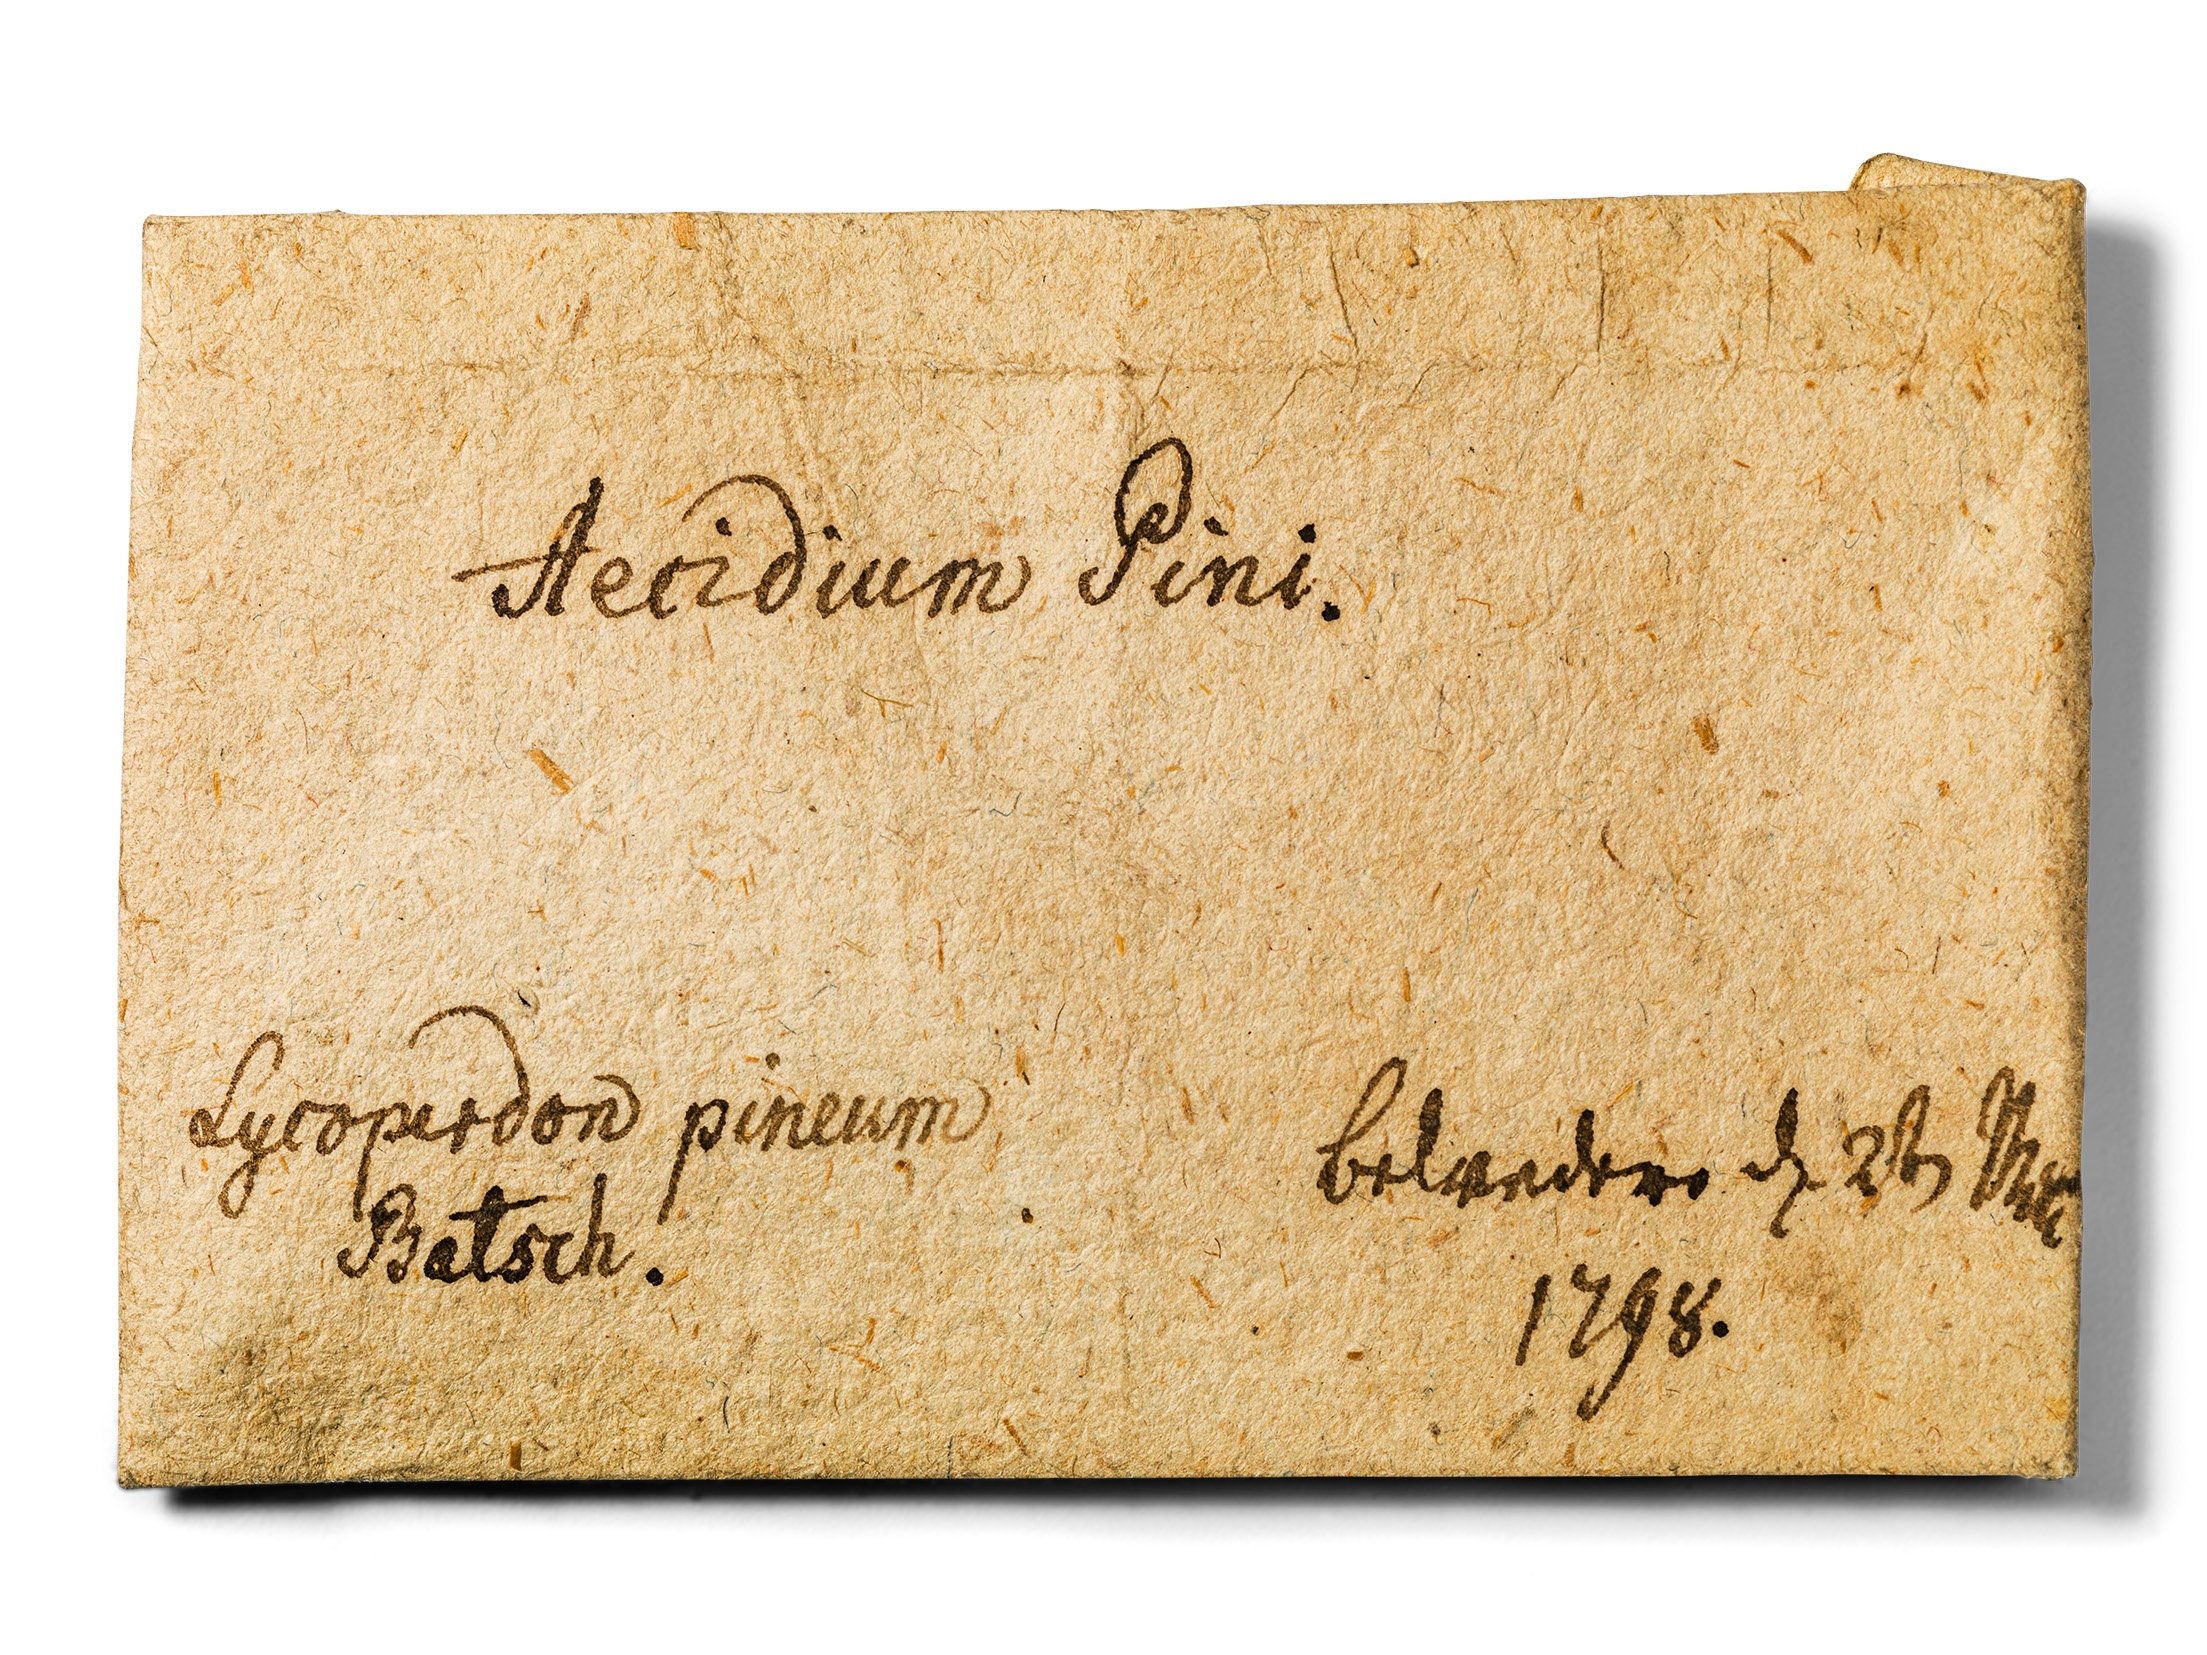 Aecidium Pini.
Lycoperdon pineum
Batsch.
Belvedere d. 2t Mai
1798.